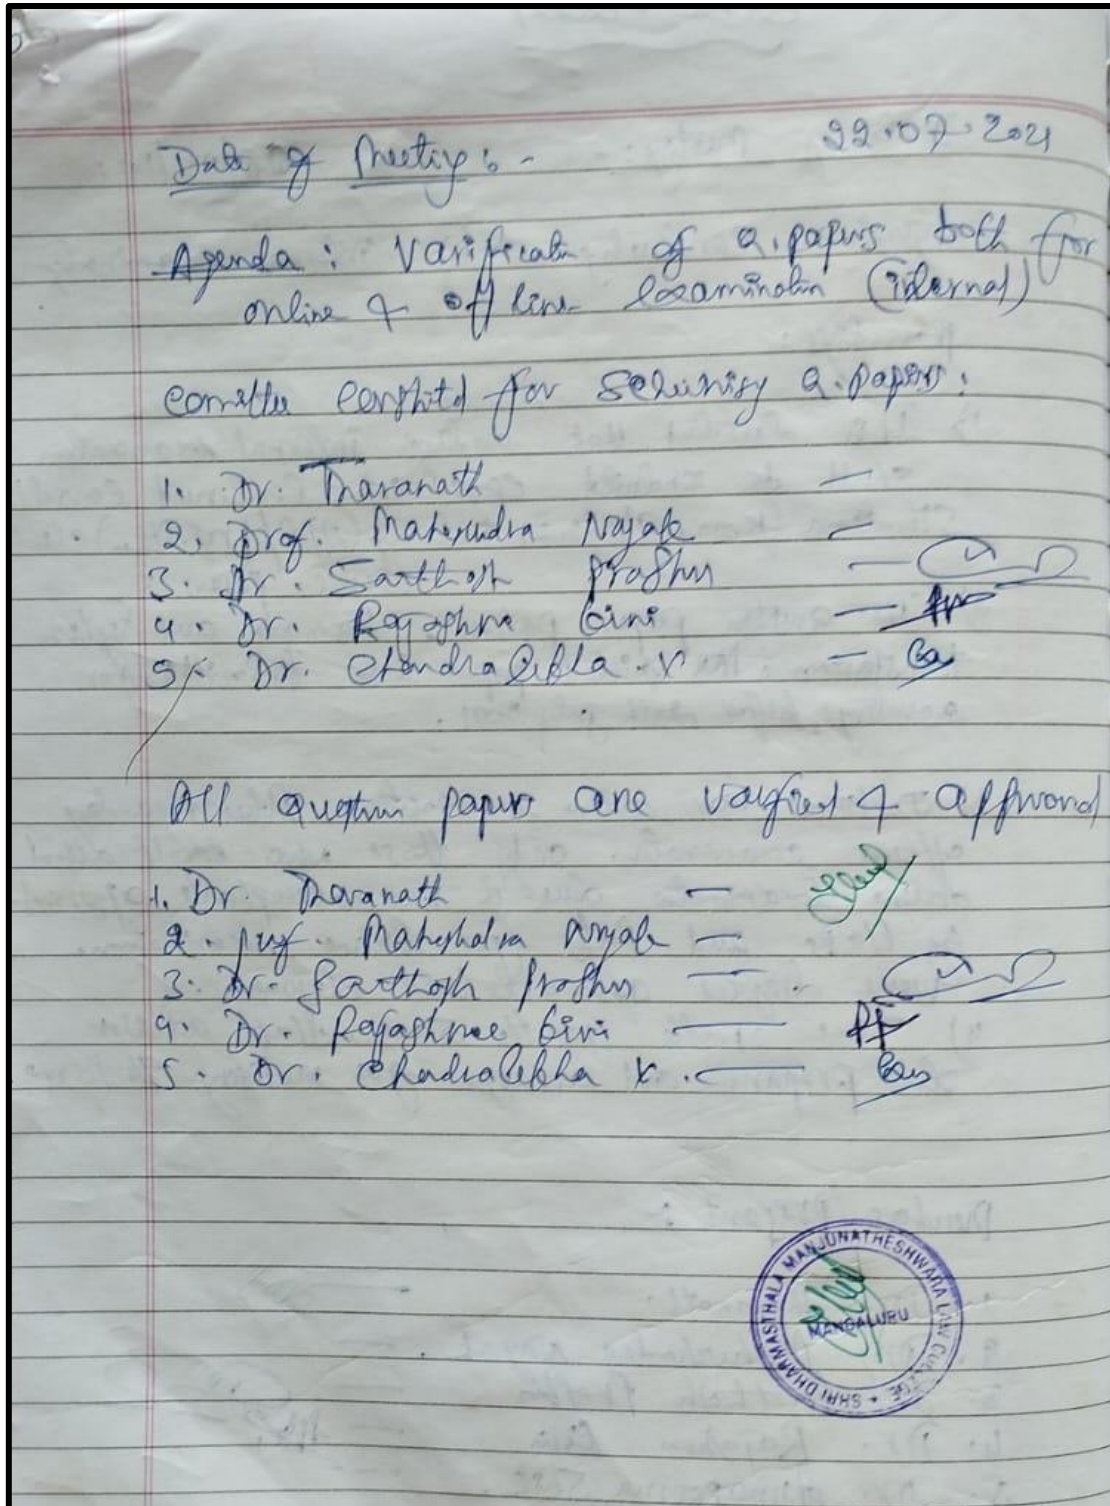 22.07.2021
Date of Meeting :-
Agenda : Varification of Q. papers both for
online & off line examination (internal)
for Q. papers.
1. Dr. Tharanath —
2. Prof. Mahesh Nayak —
3. Dr. Santhosh Prabhu —
4. Dr. Rajashree —
5. Dr. Chandralekha V —
All question papers are varified & approved
1. Dr. Tharanath —
2. Prof. Nayak —
3. Dr. Santhosh Prabhu —
4. Dr. Rajashree —
5. Dr. Chadralekha K. —
SHRI DHARMASTHALA MANJUNATHESHWARA LAW COLLEGE
MANGALURU